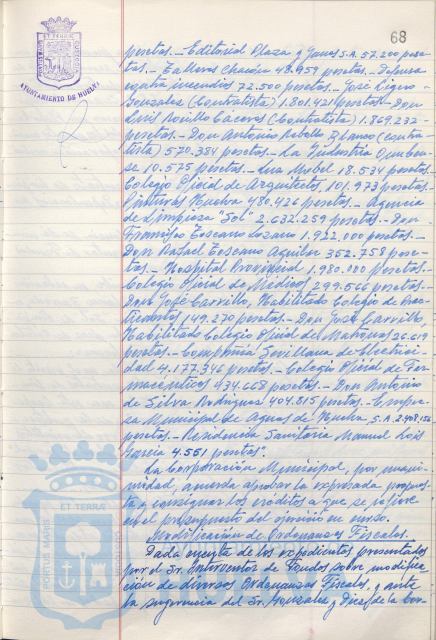 68
PORTUS MARIS ET TERRAE CUSTODIA
AYUNTAMIENTO DE HUELVA
pesetas._ Editorial Plaza y Janes S.A. 57.200 pese-
tas._ Talleres Chacón 48.959 pesetas._ Defensa
contra incendios 72.500 pesetas._ José Ligero
González (Contratista) 1.801.421 pesetas._ Don
Luis Novillo Caceres (Contratista) 1.869.232
pesetas._ Don Antonio Rebollo Blanco (contra-
tista) 570.384 pesetas._ La Industria Onuben-
se 10.575 pesetas._ Mobel 18.534 pesetas._
Colegio Oficial de Arquitectos, 101.973 pesetas._
Pinturas Huelva 480.426 pesetas._ Agencia
de Limpieza "Sol" 2.632.259 pesetas._ Don
Francisco Toscano Lozano 1.922.000 pesetas._
Don Rafael Toscano Aguilar 352.758 pese-
tas._ Hospital Provincial 1.980.000 pesetas._
Colegio Oficial de Médicos 299.566 pesetas._
Don José Carrillo, Habilitado Colegio de Prac-
ticantes 149.270 pesetas._ Don José Carrillo,
Habilitado Colegio Oficial de Matronas 26.619
pesetas._ Compañía Sevillana de Electrici-
dad 4.177.346 pesetas._ Colegio Oficial de Far-
macéuticos 434.668 pesetas._ Don Antonio
de Silva Rodriguez 404.815 pesetas._ Empre-
sa Municipal de Aguas de Huelva, S.A. 2.948.156
pesetas._ Residencia Sanitaria Manuel Lois
García 4.551 pesetas".
La Corporación Municipal, por unani-
midad, acuerda aprobar la expresada propues-
ta y consignar los créditos a que se refiere
en el presupuesto del ejercicio en curso.
Modificación de Ordenanzas Fiscales.
Dada cuenta de los expedientes presentados
por el Sr. Interventor de Fondos sobre modifica-
ción de diversas Ordenanzas Fiscales, y ante
la sugerencia del Sr. González y Diez de la Cor-
PORTUS MARIS ET TERRAE